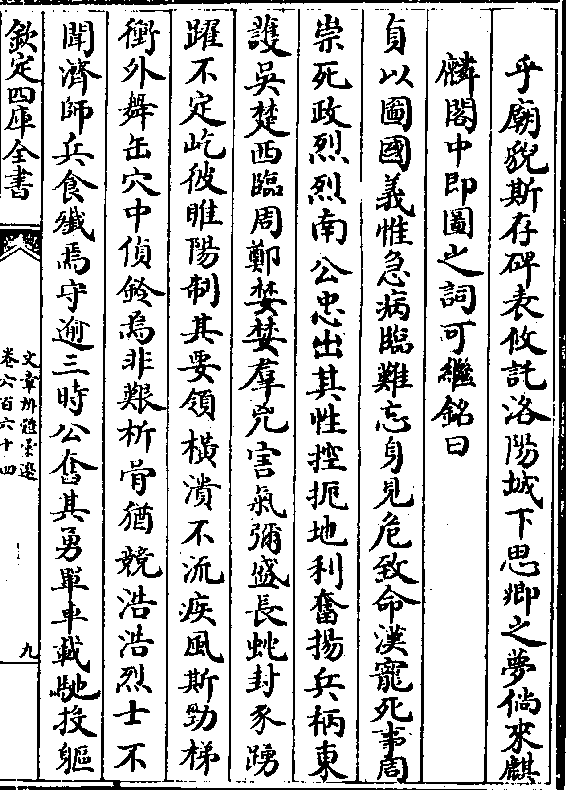 乎廟貌斯存碑表攸託洛陽城下思鄉之夢倘來麒
麟閣中即圖之詞可繼銘曰
貞以圖國義惟急病臨難忘身見危致命漢寵死事周
崇死政烈烈南公忠出其性控扼地利奮揚兵柄東
護吳楚西臨周鄭婪婪羣兇害氣彌盛長虵封豕踴
躍不定屹彼睢陽制其要領橫潰不流疾風斯勁梯
衝外舞缶穴中偵鈴馬非艱析骨猶競浩浩烈士不
聞濟師兵食殲焉守逾三時公奮其勇單車載馳投軀
欽定四庫全書
文章辨體彙選
卷六百六十四
九